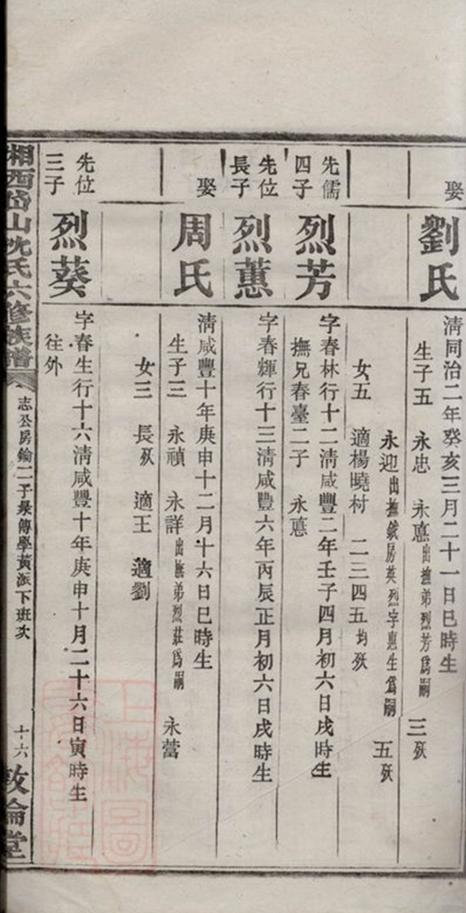 娶 劉氏 清同治二年癸亥三月二十一日巳時生
生子五 永忠 永惪出撫弟烈芳爲嗣 三殀
永迎出撫鐵房英烈字惠生爲嗣 五殀
女五 適楊曉村 二三四五均殀
先儒四子 烈芳 字春林行十二清咸豐二年壬子四月初六日戌時生
撫兄春臺二子 永惪
先位長子 烈蕙 字春輝行十三清咸豐六年丙辰正月初六日戌時生
娶 周氏 清咸豐十年庚申十二月十六日巳時生
生子三 永禎 永詳出撫弟烈莊爲嗣 永蓄
女三 長殀 適王 適劉
先位三子 烈葵 字春生行十六清咸豐十年庚申十月二十六日寅時生
往外
湘西 山沈氏六修族譜 志公房 二子景傳學黃派下班次 十六 敦倫堂